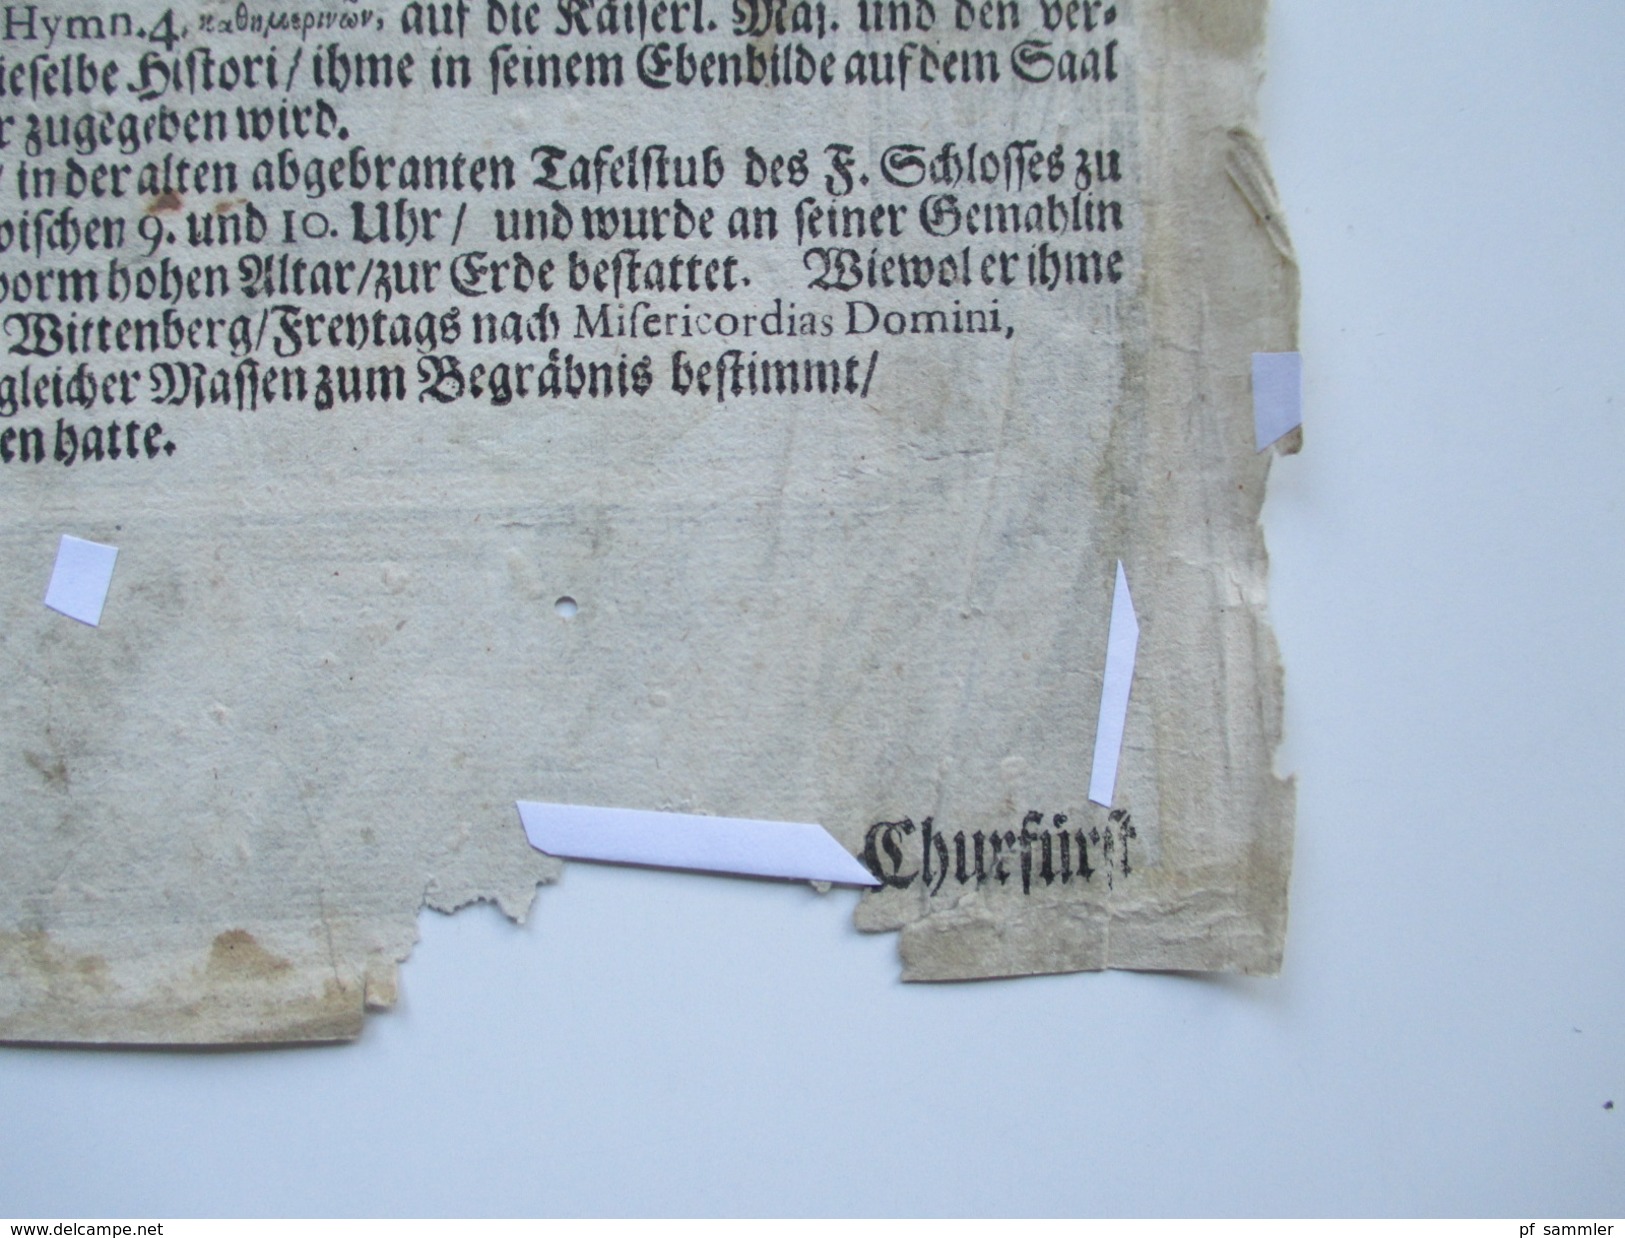 Hymn. 4. καθημερινῶν, auf die Käiserl. Maj. und den ver-
ieselbe Histori / ihme in seinem Ebenbilde auf dem Saal
r zugegeben wird.
/ in der alten abgebranten Tafelstub des F. Schlosses zu
wischen 9. und 10. Uhr / und wurde an seiner Gemahlin
vorm hohen Altar / zur Erde bestattet. Wiewol er ihme
Wittenberg / Freytags nach Misericordias Domini,
gleicher Massen zum Begräbnis bestimmt /
en hatte.
Churfürst
www.delcampe.net
pf_sammler